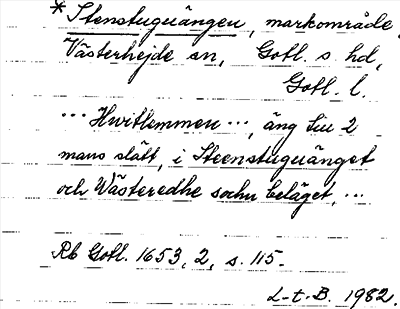 * Stenstuguängen, markområde,
Västerhejde sn, Gotl. s. hd,
Gotl. l.
... Hvrtlemmen ..., äng till 2
mans slått, i Steenstuguänget
och Wästeredhe sochn beläget, ...
Rb Gotl. 1653, 2, s. 115.
L-t-B. 1982.